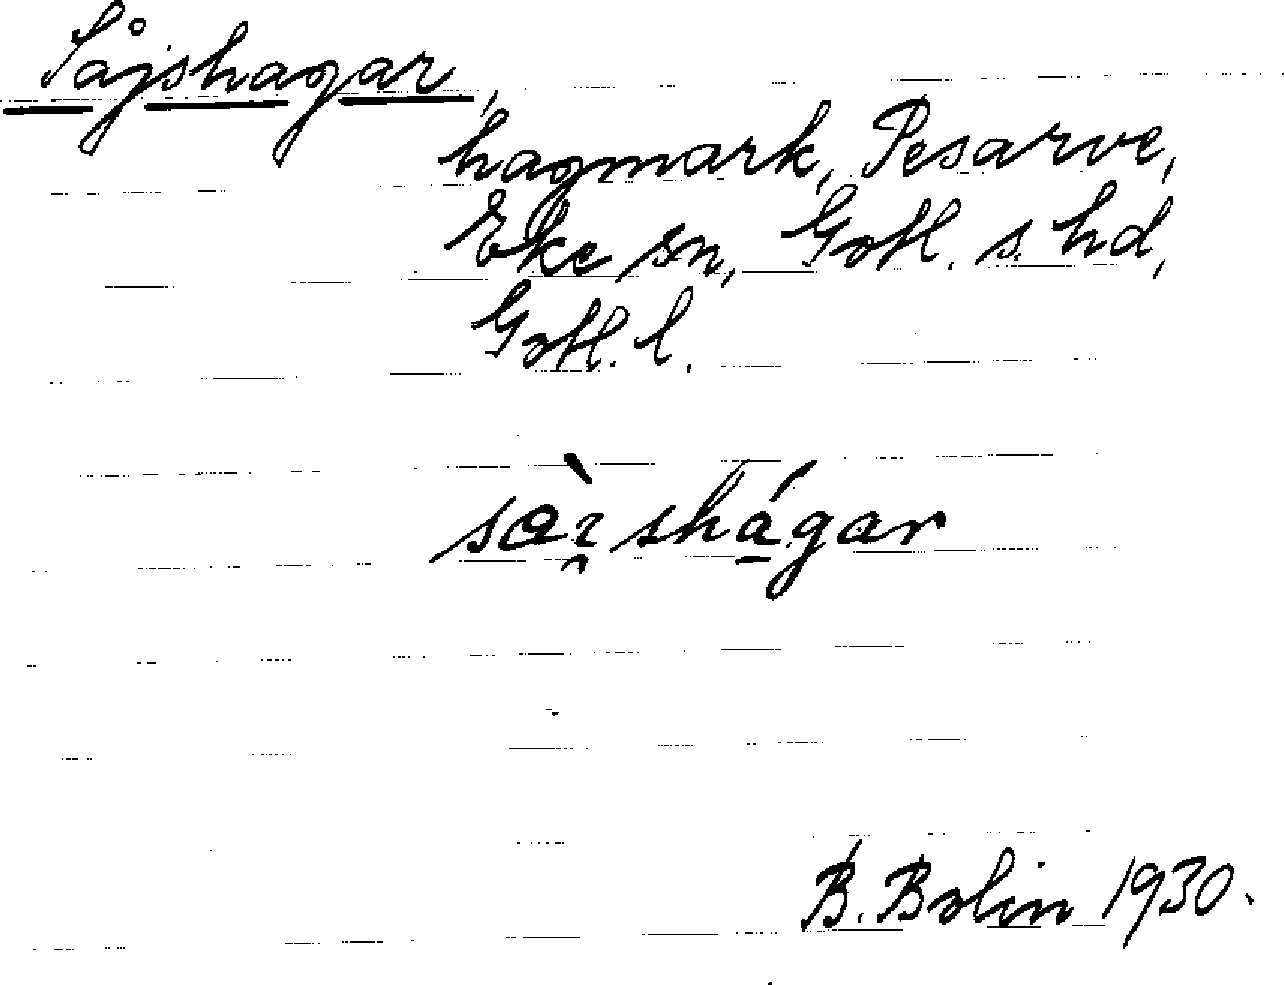 Såjshagar,
hagmark, Pesarve,
Eke sn, Gotl. s. hd,
Gotl. l.
B. Bolin 1930.